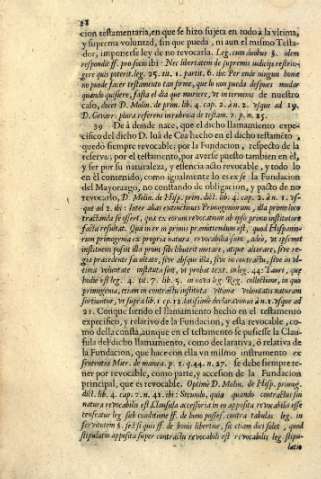 28
cion testamentaria, en que se hizo sujeta en todo à la vltima,
y suprema voluntad, sin que pueda, ni aun el mismo Testa-
dor, imponerse ley de no revocarla. Leg. cum duobus §. idem
respondit ff. pro socio ibi: Nec libertatem de supremis iudicijs restrin-
gere quis poterit. leg. 25. tit. 1. partit. 6. ibi: Por ende ningun home
no puede facer testamento tan firme, que lo non pueda despues mudar
quando quisiere, fasta el dia que muriere, & in terminos de nuestro
caso, docet D. Molin. de prim. lib. 4. cap. 2. à n. 2. vsque ad 19.
39 De à donde nace, que el dicho llamamiento expe-
cifico del dicho D. Luis de Cea hecho en el dicho testamento
quedo siempre revocable; por la Fundacion, respecto de la
reserva; por el testamento, por averse puesto tambien en el,
y ser por su naturaleza, y essencia acto revocable, y todo lo
en èl contenido, como igualmente lo es ex se la Fundacion
del Mayorazgo, no constando de obligacion, y pacto de no
revocarlo, D. Molin. de Hisp. prim. dict. lib. 4. cap. 2. à n. 1. vs-
que ad 2. ibi: Inter alias extantiores Primogeniorum, illa primo loco
tractanda se offert, quæ ex eorum revocatione ab ipso primo institutore
facta resultat. Qua in re in primis præmittendum est, quod Hispano-
rum primogenia ex propria natura revocabilia sunt, adeo, vt si semel
instituens possit illa prout sibi libuerit mutare, atque alterare, sive re-
gia præcedente facultate, sive absque illa, sive in contractu, sive in vl-
tima voluntate instituta sint, vt probat text. in leg. 44. Tauri, quæ
hodie est leg. 4. tit. 7. lib. 5. in nova leg. Reg. collectione, in quo
primogenia, etiam in contractu instituta vltimæ voluntatis naturam
sortiuntur, vt supra lib. 1. cap. 12. latissimè declaravimus à n. 1. vsque ad
21. Con que siendo el llamamiento hecho en el testamento
expecifico, y relativo de la Fundacion, y ella revocable, co-
mo della consta, aunque en el testamento se pusiesse la Clau-
sula del dicho llamamiento, como declarativa, ò relativa de
la Fundacion, que hace con ella vn mismo instrumento ex
sententia Mier. de maior. p. 1. q. 44. n. 27. se debe siempre te-
ner por revocable, como parte, y accession de la Fundacion
principal, que es revocable. Optimè D. Molin. de Hisp. primog.
dict. lib. 4. cap. 2. n. 42. ibi: Secundo, quia quando contractus sui
natura revocabilis est Clausula accessoria in eo apposita revocabilis esse
censetur leg. sub conditione ff. de bonor. possess. contra tabulas leg. in
servitutem §. sed si quis ff. de bonis libertor. sic etiam dici solet, quod
stipulatio apposita super contractu revocabili est revocabilis leg. stipu-
latio